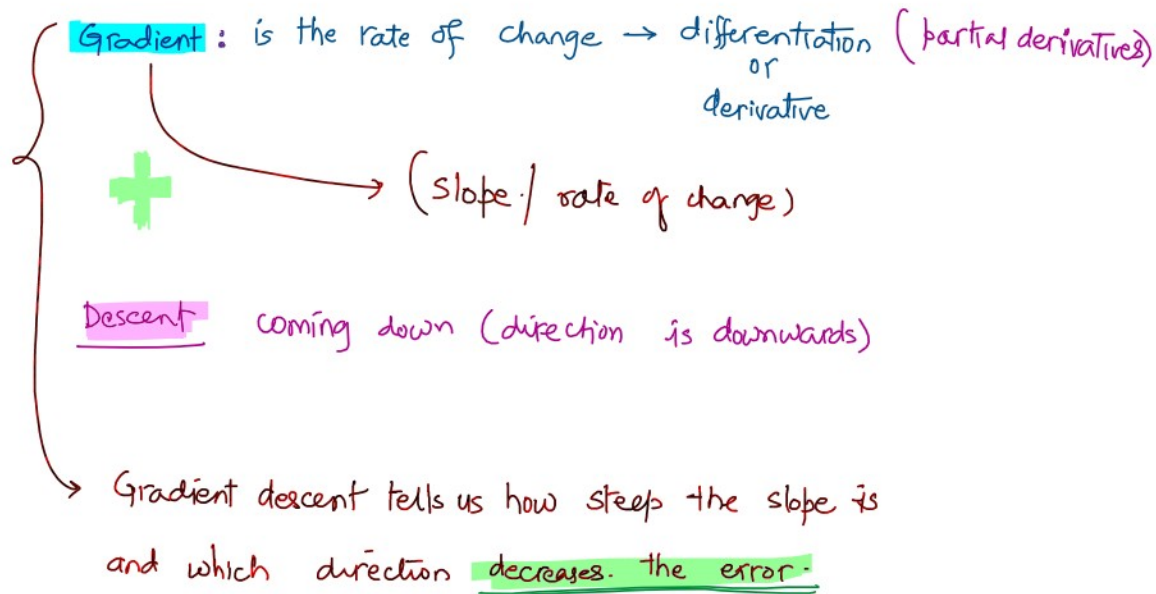 Gradient : is the rate of change → differentiation (partial derivatives)
or
derivative
+
(slope. / rate of change)
Descent coming down (direction is downwards)
Gradient descent tells us how steep the slope is
and which direction decreases. the error.